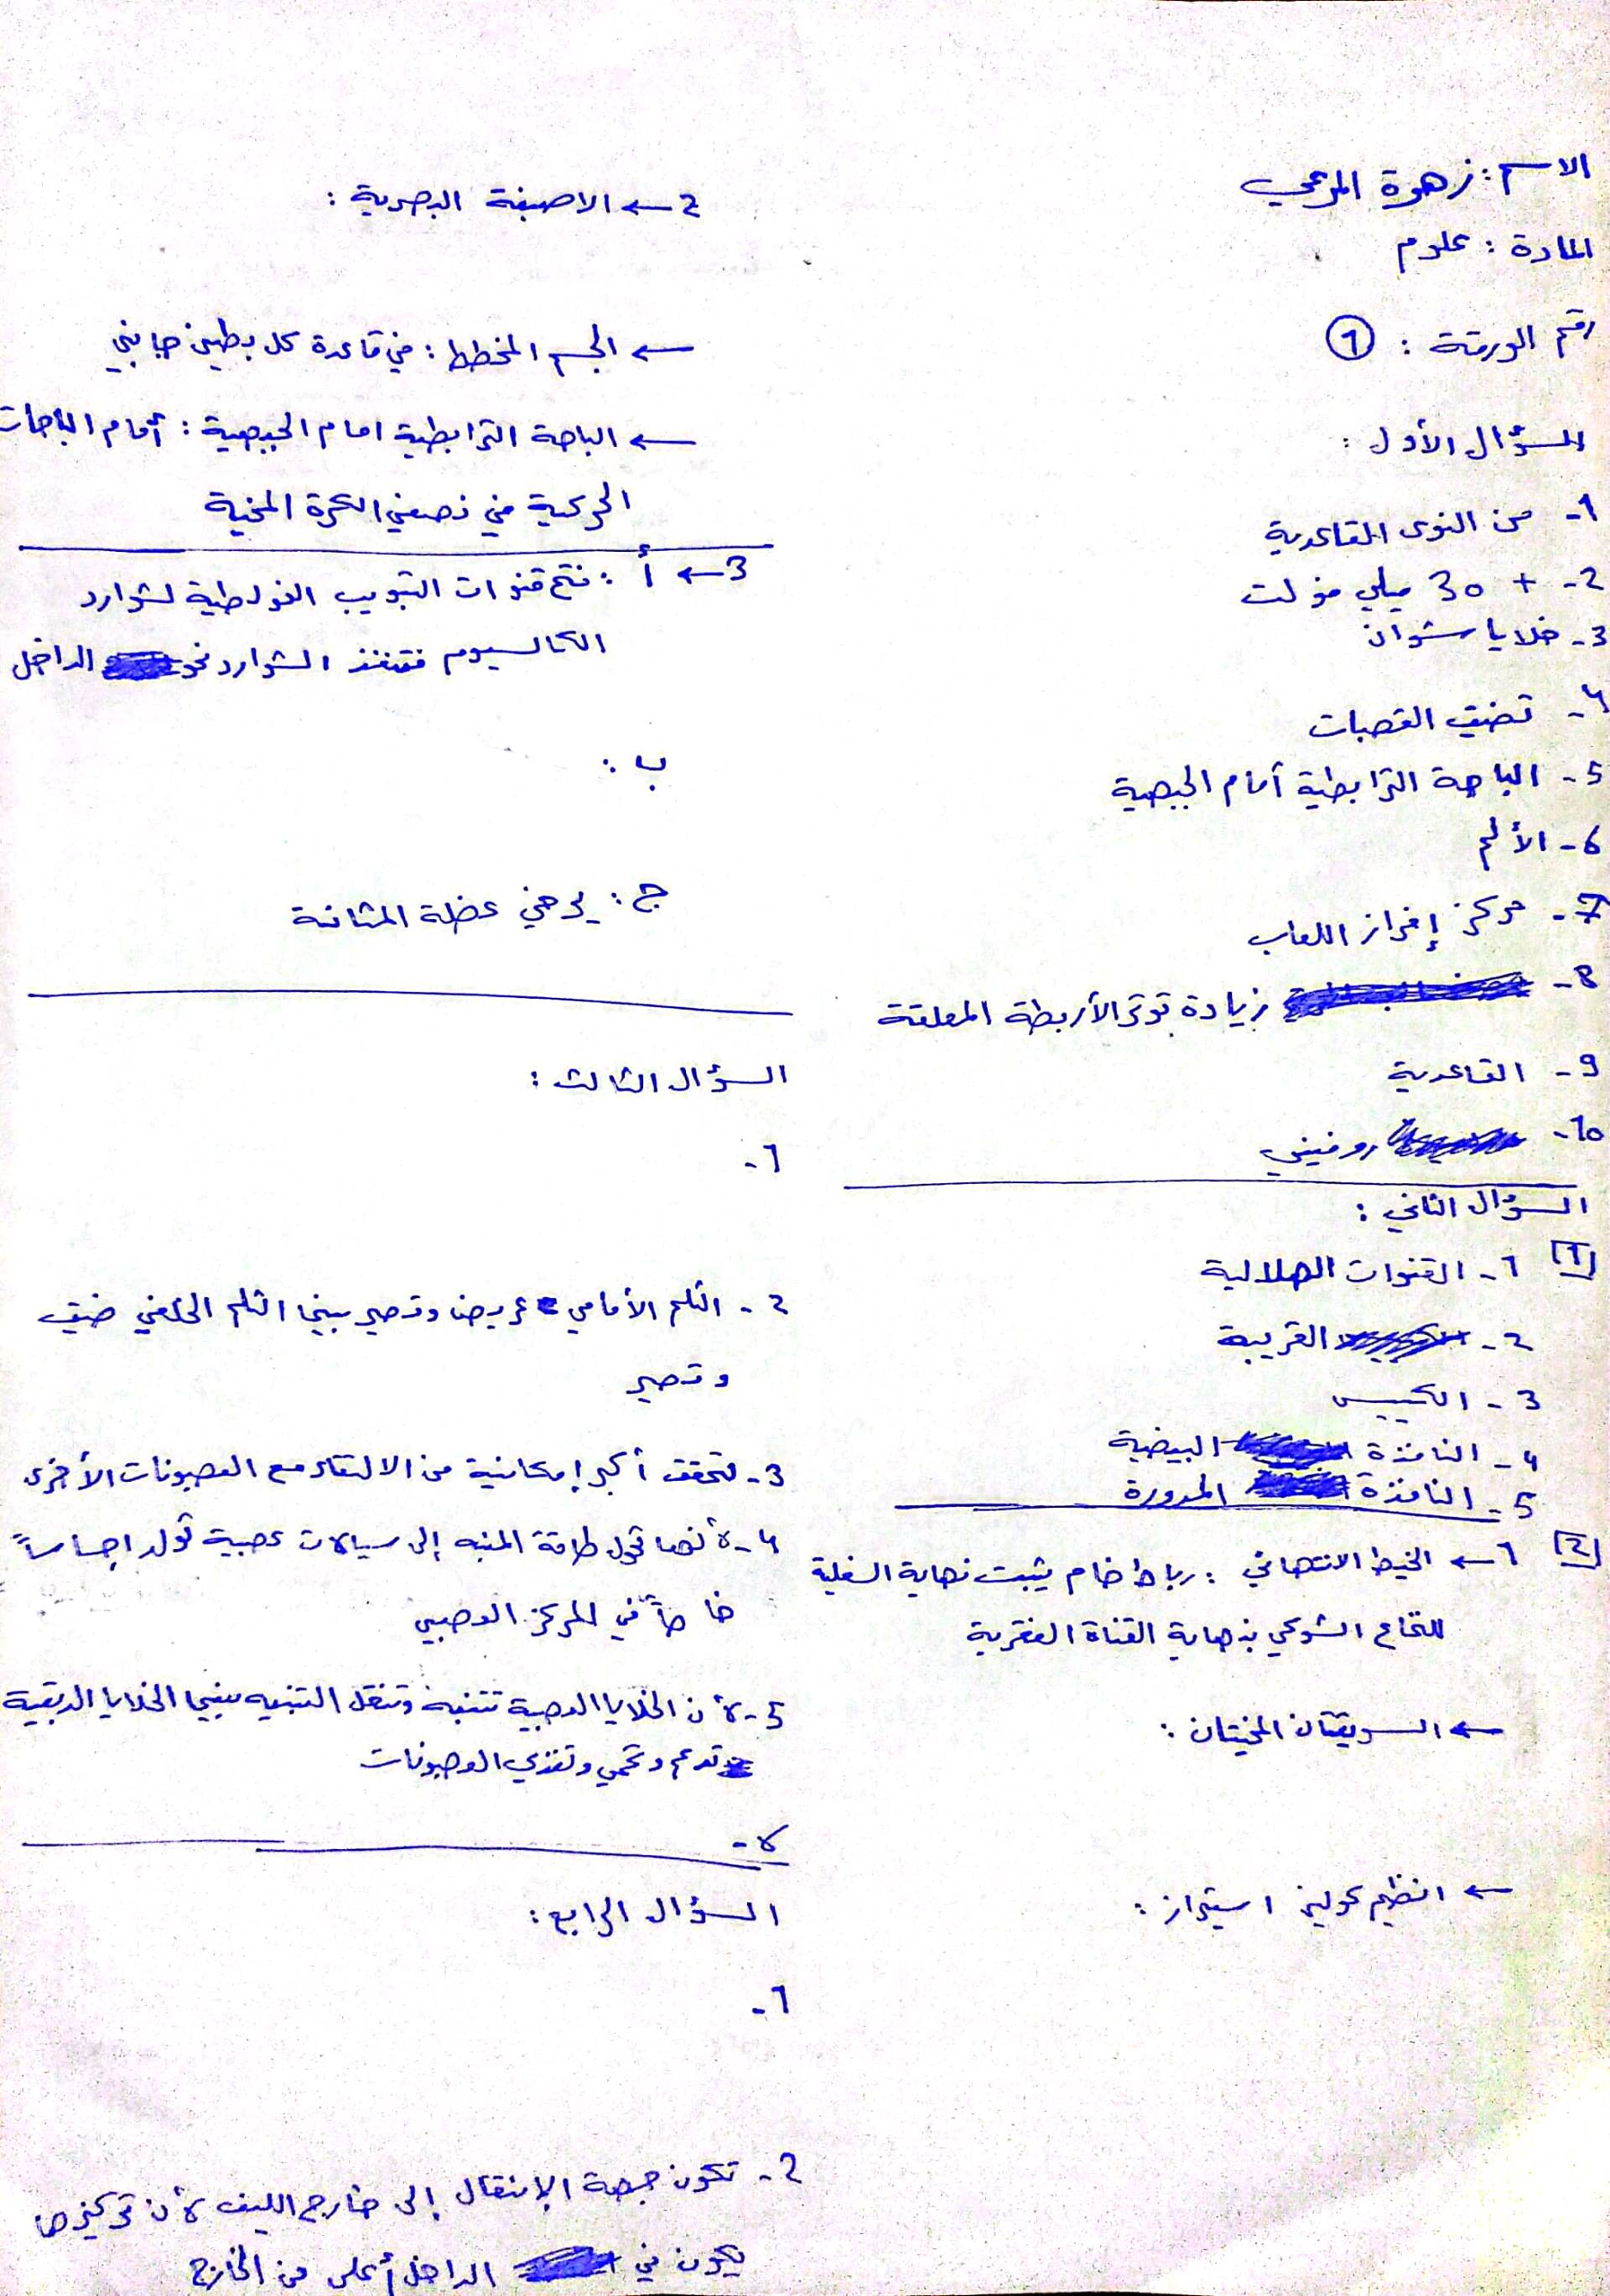 الاسم: زهوة المرعي
المادة : علوم
رقم الورقة : 1
السؤال الأول :
1- من النوى القاعدية
2- + 30 ميلي فولت
3- خلايا شوان
4- تضيق القصبات
5- الباحة الترابطية أمام الجبهية
6- الألم
7- مركز إفراز اللعاب
8- زيادة توتر الأربطة المعلقة
9- القاعدية
10- روفيني
السؤال الثاني :
[1] 1- القنوات الهلالية
2- القريبة
3- الكييس
4- النافذة البيضية
5- النافذة المدورة
[2] 1 ← الخيط الانتهائي : رباط ضام يثبت نهاية السفلية
للنخاع الشوكي بنهاية القناة الفقرية
← السويقتان المخيتان :
← انظيم كولين استيراز :
2 ← الاصبغة البصرية :
← الجسم المخطط : في قاعدة كل بطين جانبي
← الباحة الترابطية امام الجبهية : أمام الباحات
الحركية في نصفي الكرة المخية
3 ← أ : فتح قنوات التبويب الفولطية لشوارد
الكالسيوم فتنفذ الشوارد نحو الداخل
ب :
ج : يرخي عضلة المثانة
السؤال الثالث :
1-
2- الثلم الأمامي عريض وقصير بينما الثلم الخلفي ضيق
وقصير
3- لتحقق أكبر إمكانية من الالتقاء مع العصبونات الأخرى
4- لأنها تحول طاقة المنبه إلى سيالات عصبية تولد احساساً
خاصاً في المركز العصبي
5- لأن الخلايا العصبية تتنبه وتنقل التنبيه بينما الخلايا الدبقية
تدعم وتحمي وتغذي العصبونات
6-
السؤال الرابع :
1-
2- تكون جهة الإنتقال إلى خارج الليف لأن تركيزها
يكون في الداخل أعلى من الخارج